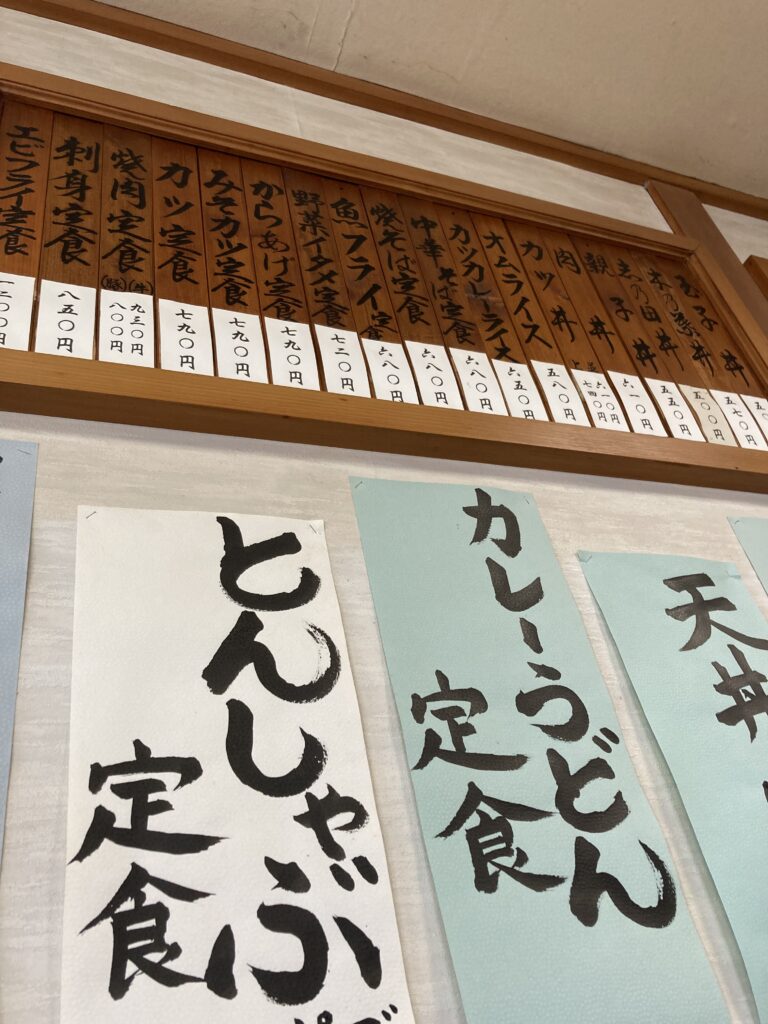 玉子丼
木の葉丼 五七〇円
志の田丼 五〇〇円
親子丼 五五〇円
肉丼 六一〇円
カツ丼 六一〇円
上 七四〇円
オムライス 五八〇円
カツカレーライス 六五〇円
中華そば定食 六八〇円
焼そば定食 六八〇円
魚フライ定食 六八〇円
野菜イタメ定食 七二〇円
からあげ定食 七九〇円
みそカツ定食 七九〇円
カツ定食 七九〇円
焼肉定食 (牛)九三〇円
(豚)八〇〇円
刺身定食 八五〇円
エビフライ定食 一二〇〇円
天丼
カレーうどん
定食
とんしゃぶ
定食